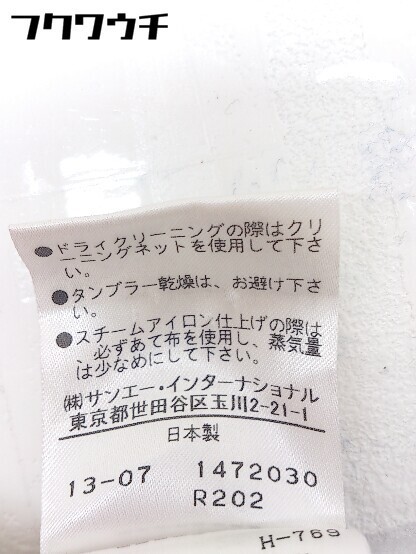 フクワウチ
●ドライクリーニングの際はクリ
ーニングネットを使用して下さ
い。
●タンブラー乾燥は、お避け下さ
い。
●スチームアイロン仕上げの際は
、必ずあて布を使用し、蒸気量
は少なめにして下さい。
㈱サンエー・インターナショナル
東京都世田谷区玉川2-21-1
日本製
13-07 1472030
R202
H-769